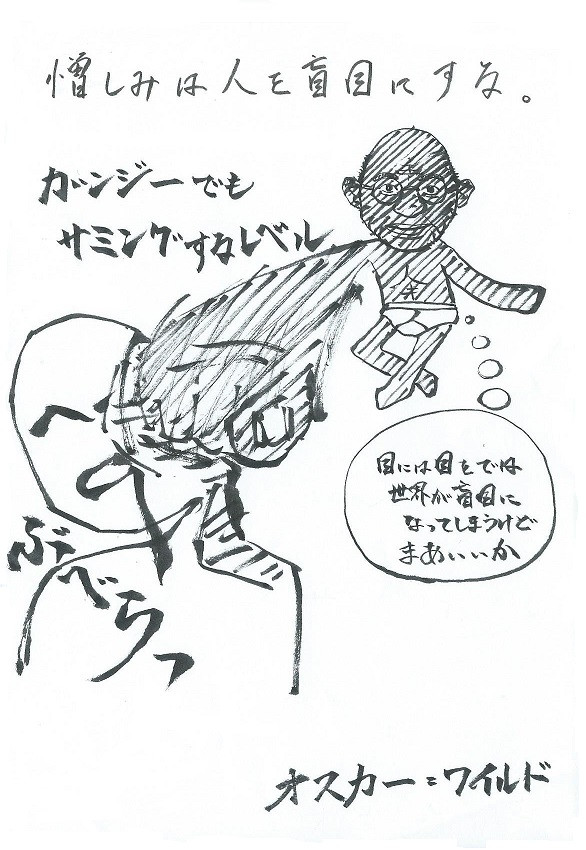 憎しみは人を盲目にする。
ガンジーでも
サミングするレベル
目には目をでは
世界が盲目に
なってしまうけど
まあいいか
ぶべらっ
オスカー=ワイルド